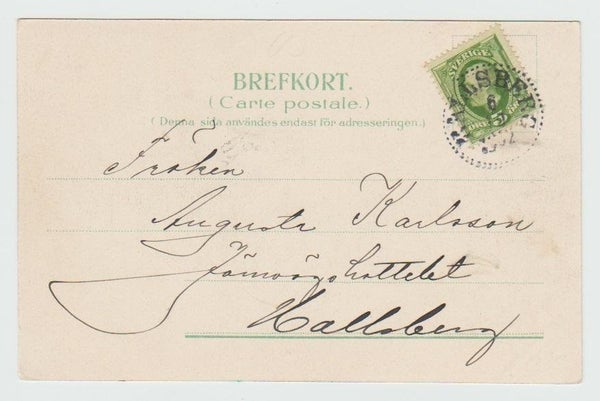 BREFKORT.
(Carte postale.)
(Denna sida användes endast för adresseringen.)
SVERIGE
HALLSBERG
6
1902
Fröken
Augusta Karlsson
Järnvägshottelet
Hallsberg